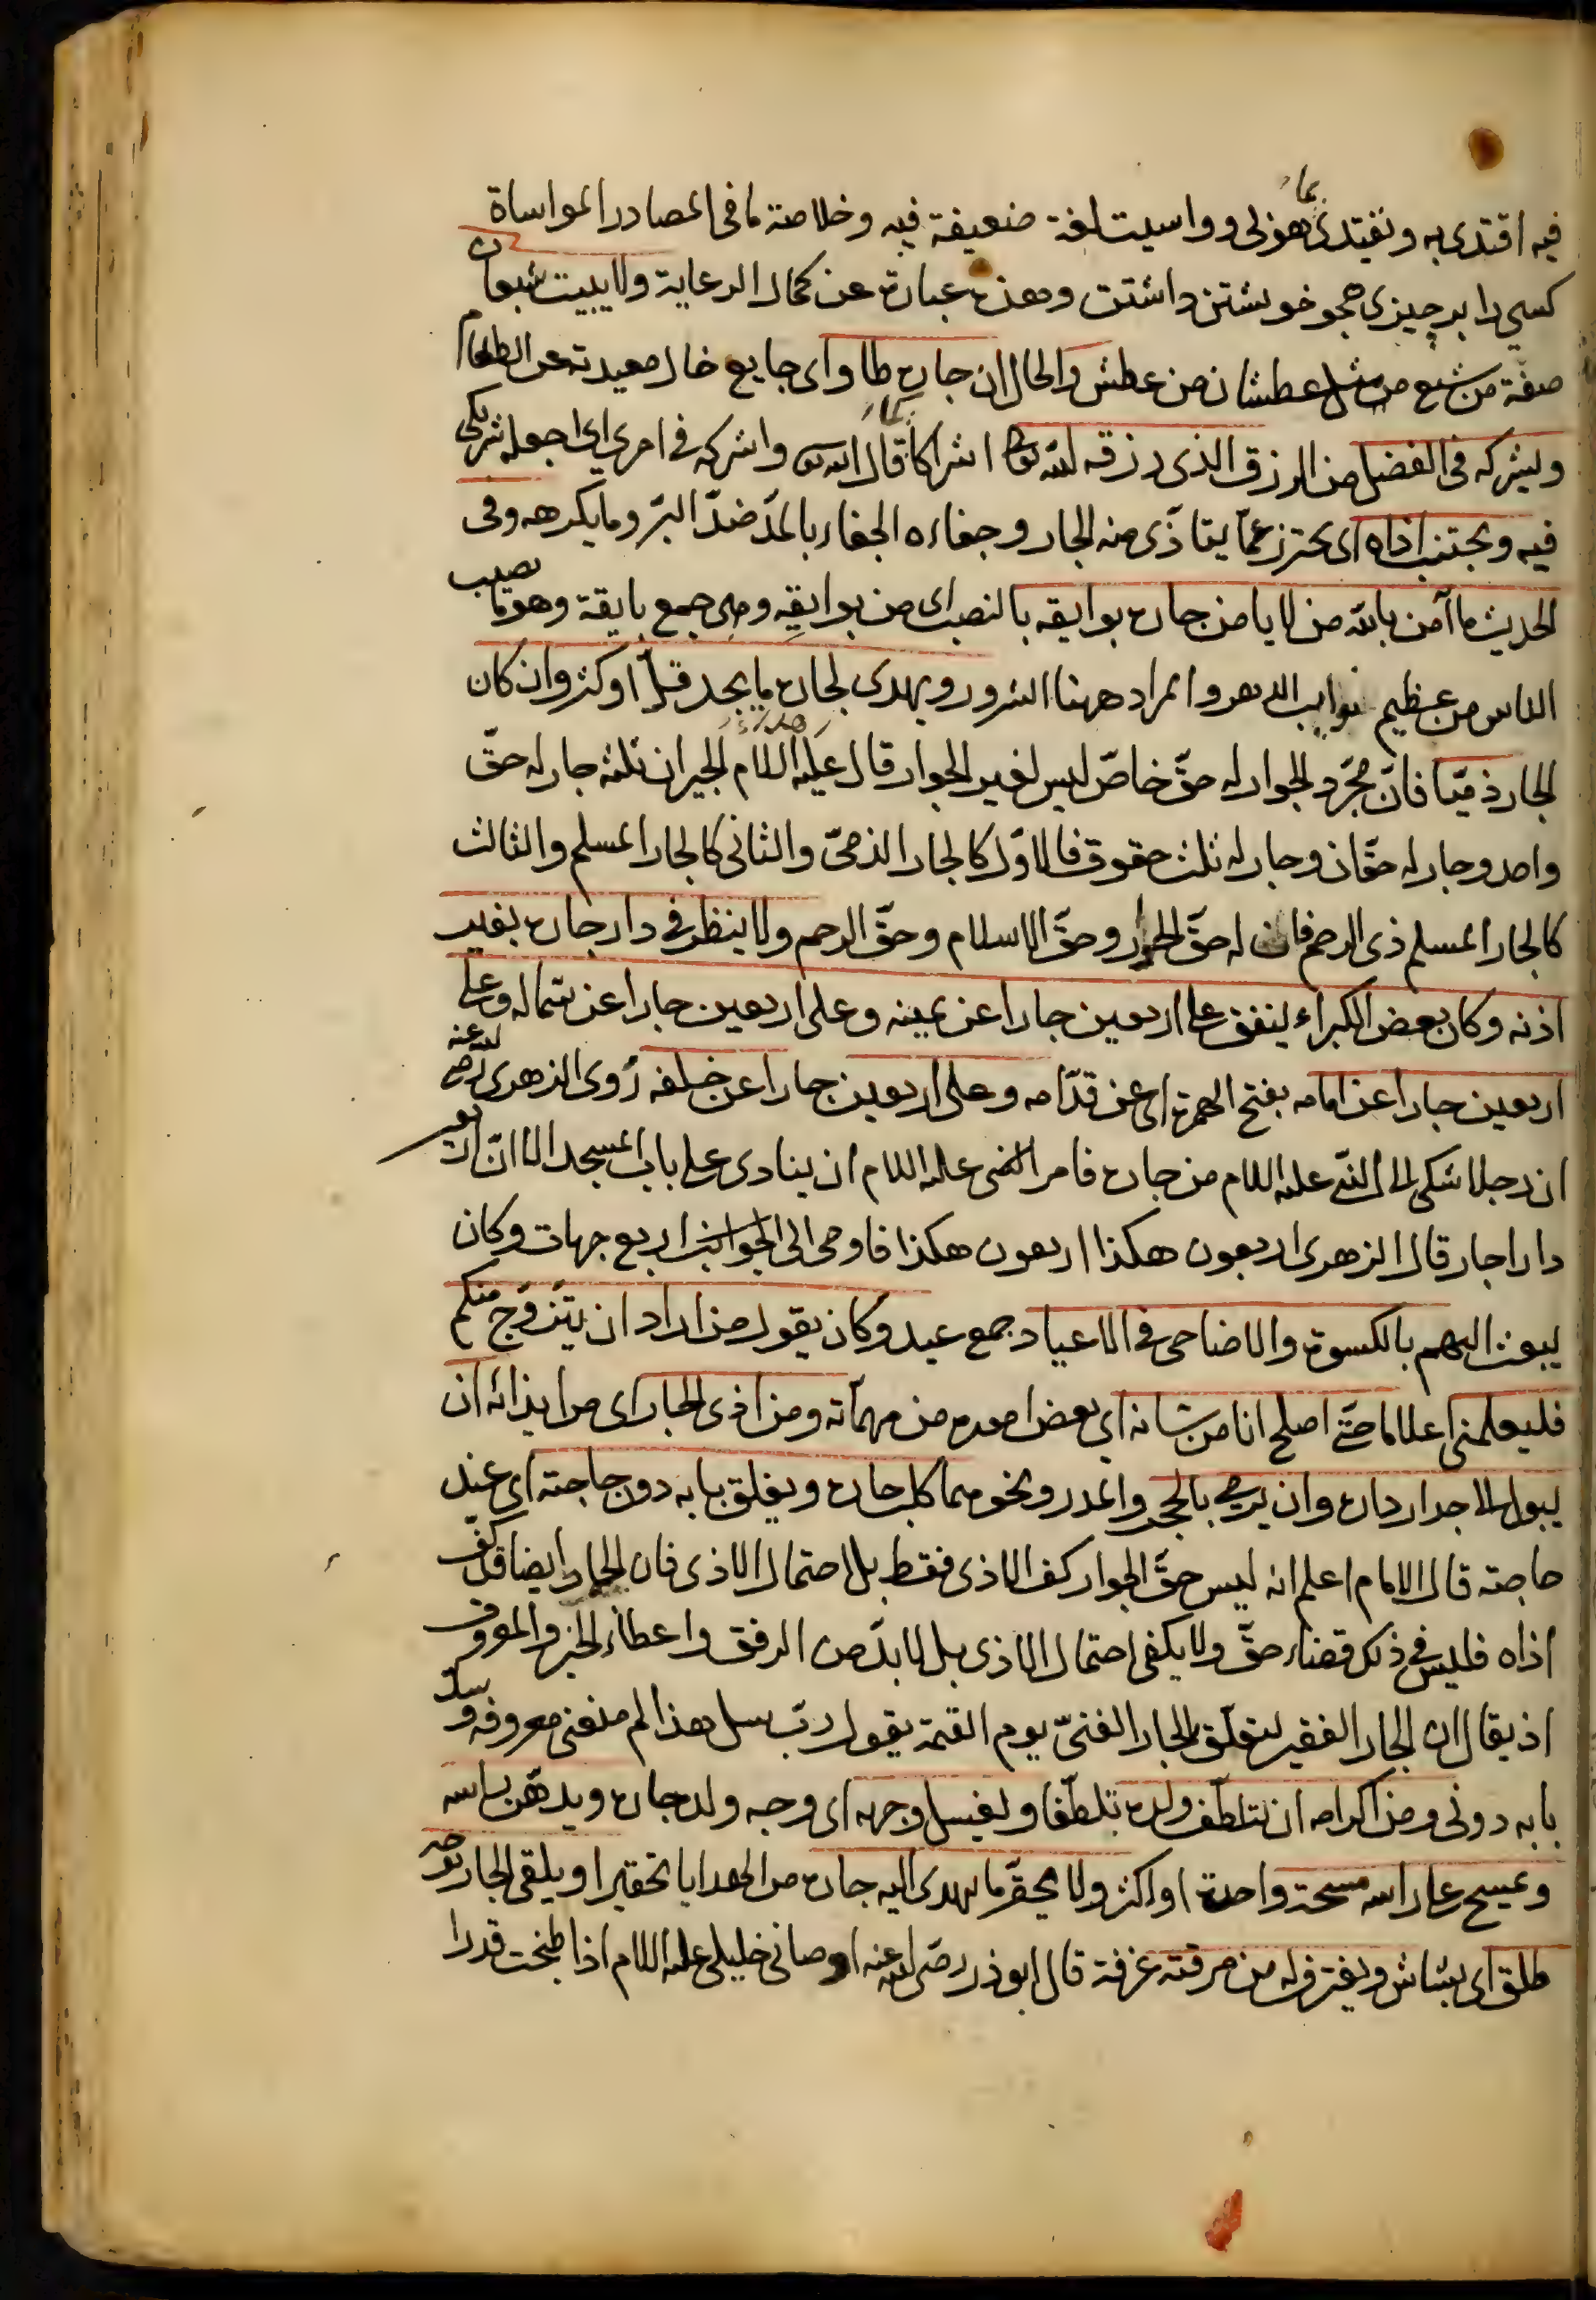 فيه اقتدى به ويقتدى بما هو لى وواسيت لغة ضعيفة فيه وخلاصة ما فى المصادر المواساة
كسي را بر چيزى همچو خويشتن داشتن وهذه عبارة عن كمال الرعاية ولا يبيت شبعان
صفة من شبع من مثل عطشان من عطش والحال ان جاره طاو اى جايع خال معيدته عن الطعام
ويشركه فى الفضل من الرزق الذى رزقه الله تعالى اشراكا كما قال الله تعالى واشركه فى امرى اى اجعله شريكى
فيه ويجتنب اذاه اى يحترز عمّا يتاذّى منه الجار وجفاءه الجفاء بالمدّ ضدّ البرّ وما يكرهه وفى
الحديث ما آمن بالله من لا يامن جاره بوايقه بالنصب اى من بوايقه وهى جمع بايقة وهو ما يصيب
الناس من عظيم نوايب الدهر والمراد ههنا الشرور ويهدى لجاره ما يجد قلّ او كثر وان كان
الجار ذمّيا فانّ مجرّد الجوار له حقّ خاصّ ليس لغير الجوار قال عليه السلام الجيران ثلثة جار له حقّ
واحد وجار له حقّان وجار له ثلث حقوق فالاوّل كالجار الذمىّ والثانى كالجار المسلم والثالث
كالجار المسلم ذى الرحم فان له حقّ الجوار وحقّ الاسلام وحقّ الرحم ولا ينظر فى دار جاره بغير
اذنه وكان بعض الكبراء ينفق على اربعين جارا عن يمينه وعلى اربعين جارا عن شماله وعلى
اربعين جارا عن امامه بفتح الهمزة اى عن قدّامه وعلى اربعين جارا عن خلفه روى الزهرى رضى الله عنه
ان رجلا شكى الى النبى عليه السلام من جاره فامر النبى عليه السلام ان ينادى على باب المسجد الا انّ اربعين
دارا جار قال الزهرى اربعون هكذا اربعون هكذا فاومى الى الجوانب اربع جهات وكان
يبعث اليهم بالكسوة والاضاحى فى الاعياد جمع عيد وكان يقول من اراد ان يتزوّج منكم
فليعلمنى اعلاما حتّى اصلح انا من شانه اى بعض اموره من مهمّاته ومن اذى الجار اى من ايذائه ان
يبول الى جدار داره وان يرمى بالحجر والمدر ونحوهما كلب جاره ويغلق بابه دون حاجته اى عند
حاجته قال الامام اعلم انه ليس حقّ الجوار كفّ الاذى فقط بل احتمال الاذى فان الجار ايضا قد كفّ
اذاه فليس فى ذلك قضاء حقّ ولا يكفى احتمال الاذى بل لا بدّ من الرفق واعطاء الخير والمعروف
اذ يقال ان الجار الفقير ليتعلّق بالجار الغنىّ يوم القيمة يقول ربّ سل هذا لم منعنى معروفه وسدّ
بابه دونى ومن اكرامه ان يتلطّف ولده تلطّفا ويغسل وجهه اى وجه ولد جاره ويدهّن راسه
ويمسح على راسه مسحة واحدة او اكثر ولا يحقّر ما يهدى اليه جاره من الهدايا تحقيرا ويلقى الجار بوجه
طلق اى بشاش ويغترف له من مرقته غرفة قال ابو ذر رضى الله عنه اوصانى خليلى عليه السلام اذا طبخت قدرا